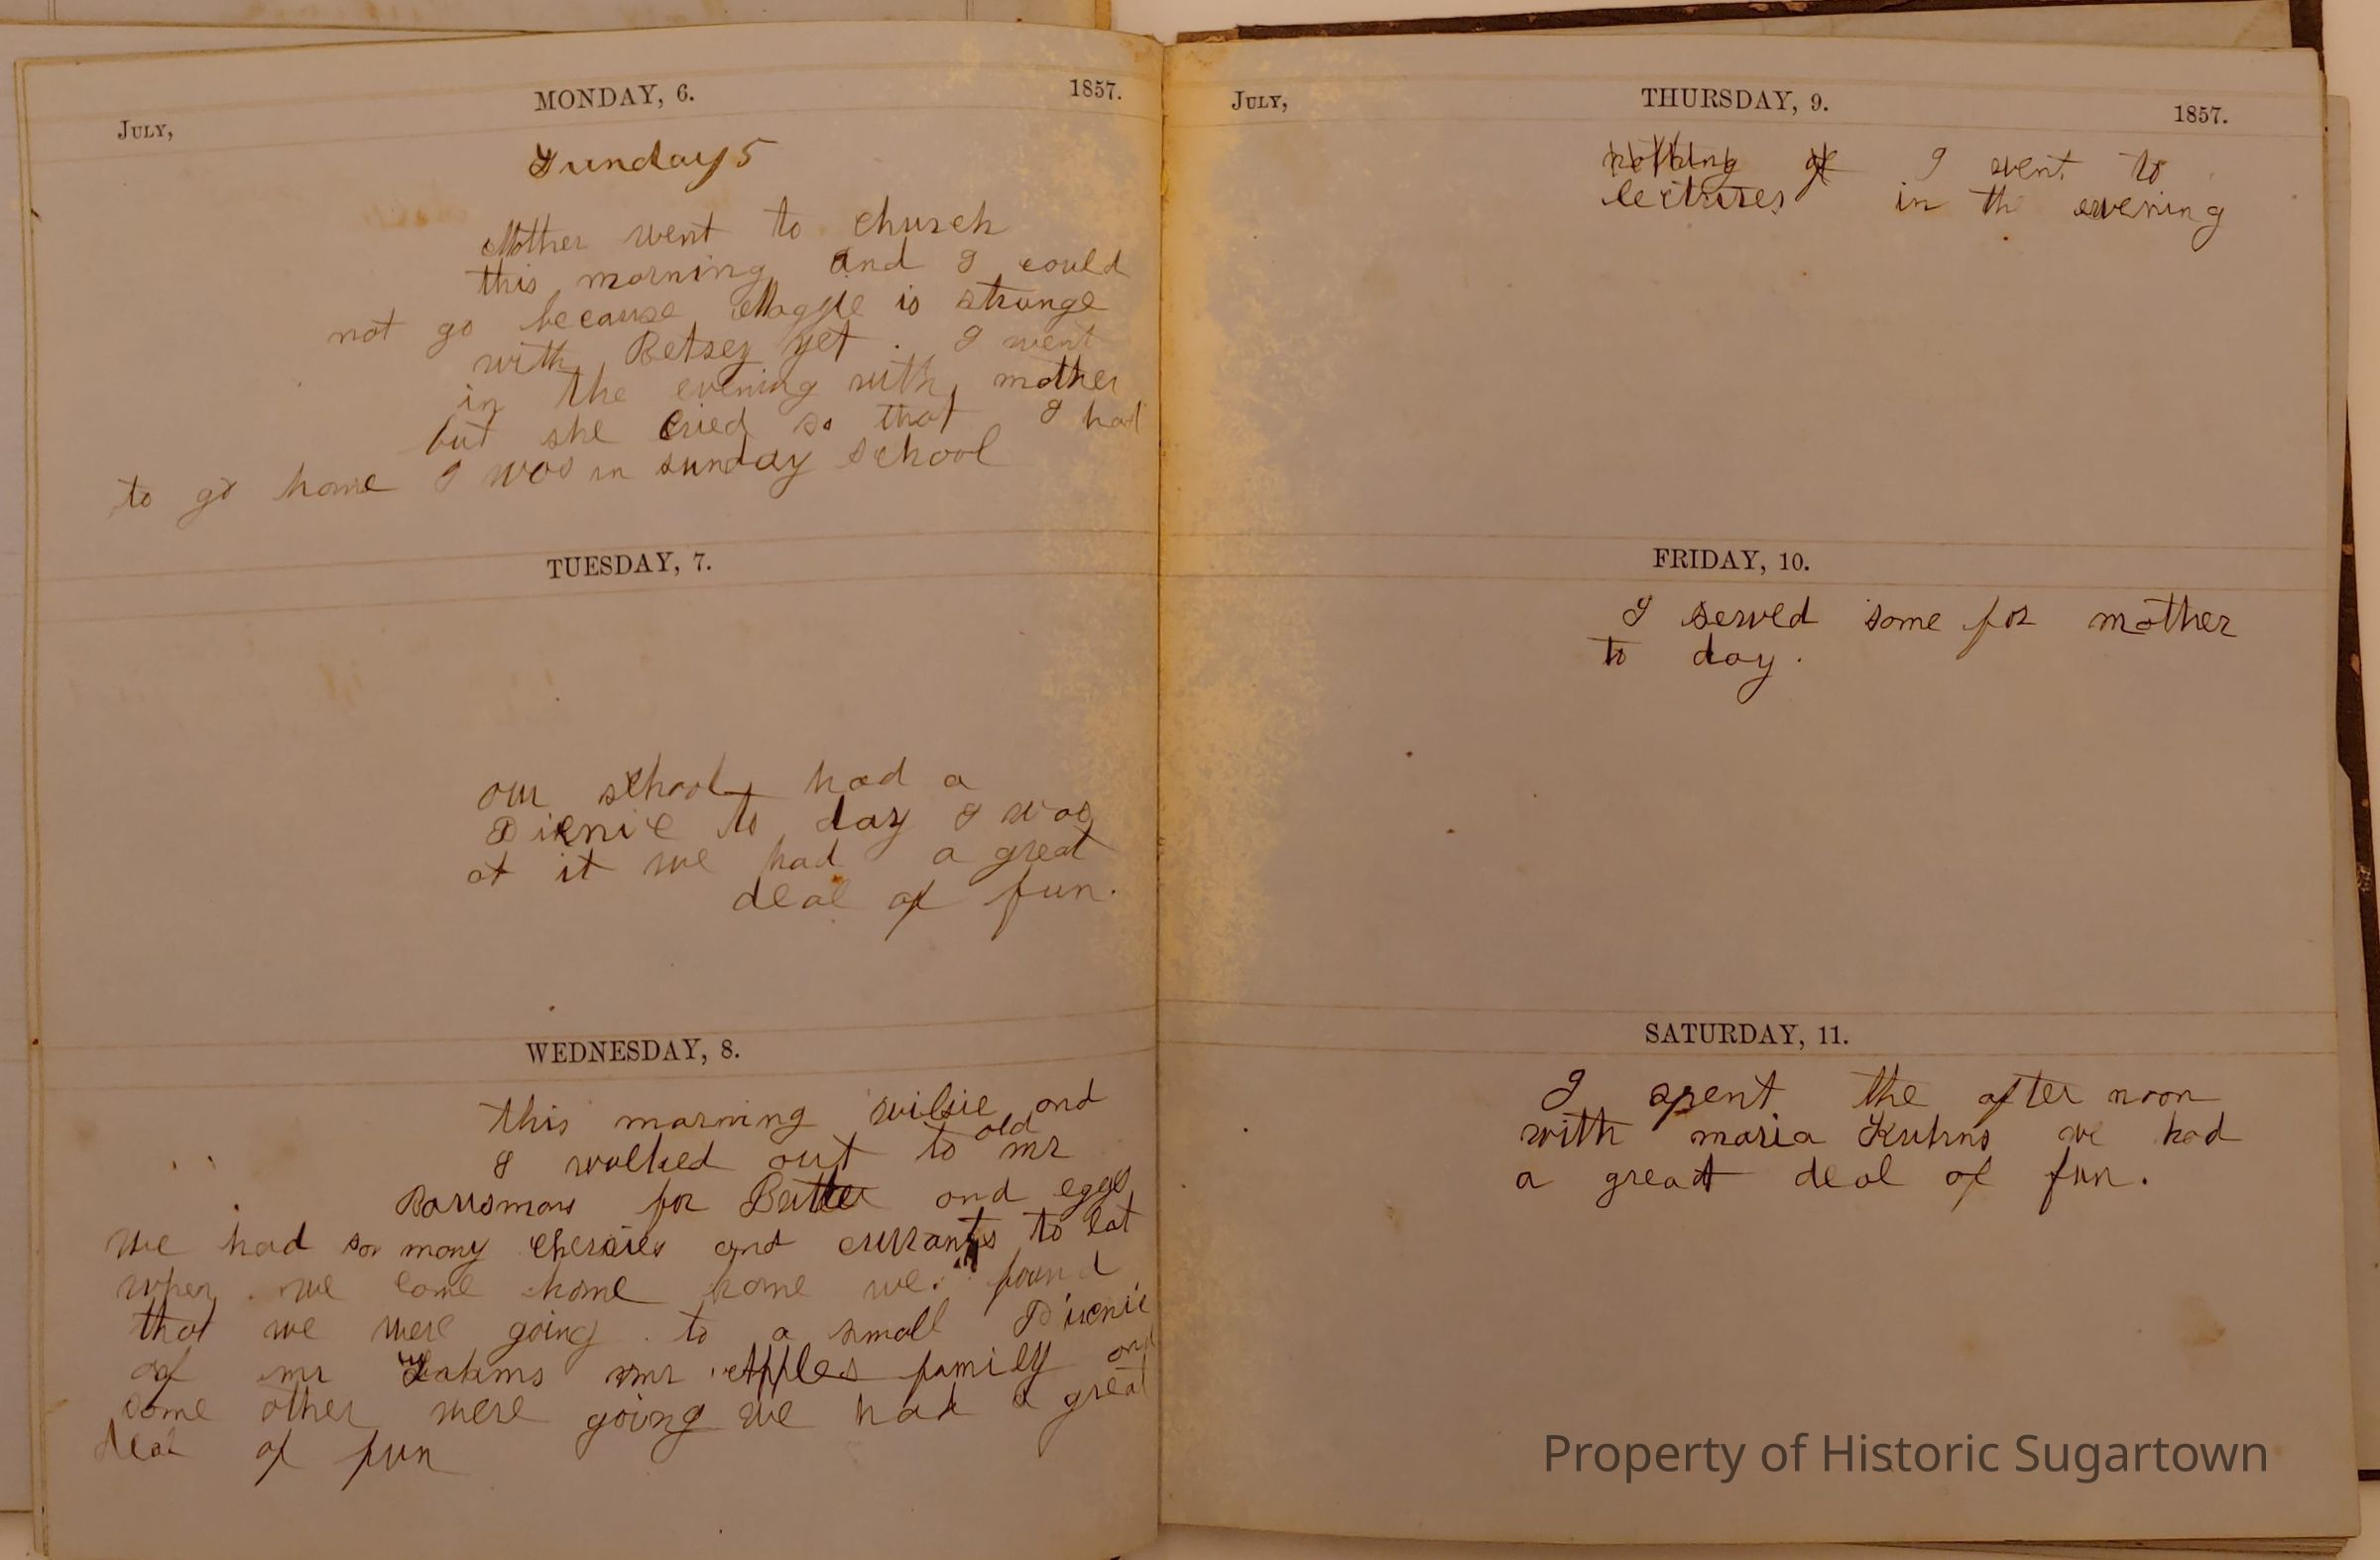 July,
MONDAY, 6.
1857.
Sunday 5
Mother went to church
this morning and I could
not go because Maggie is strange
with Betsey yet. I went
in the evening with mother
but she cried so that I had
to go home I was in sunday school
TUESDAY, 7.
our school had a
Picnic to day I was
at it we had a great
deal of fun.
WEDNESDAY, 8.
this morning willie and
I walked out to old mr
for Butter and eggs
we had so many cherries and currants to eat
when we come home home we found
that we were going to a small Picnic
of mr mr Apples family and
some other were going we had a great
deal of fun
July,
THURSDAY, 9.
1857.
nothing of I went to
lectures in the evening
FRIDAY, 10.
I served some for mother
to day.
SATURDAY, 11.
I spent the after noon
with maria Kuhns we had
a great deal of fun.
Property of Historic Sugartown